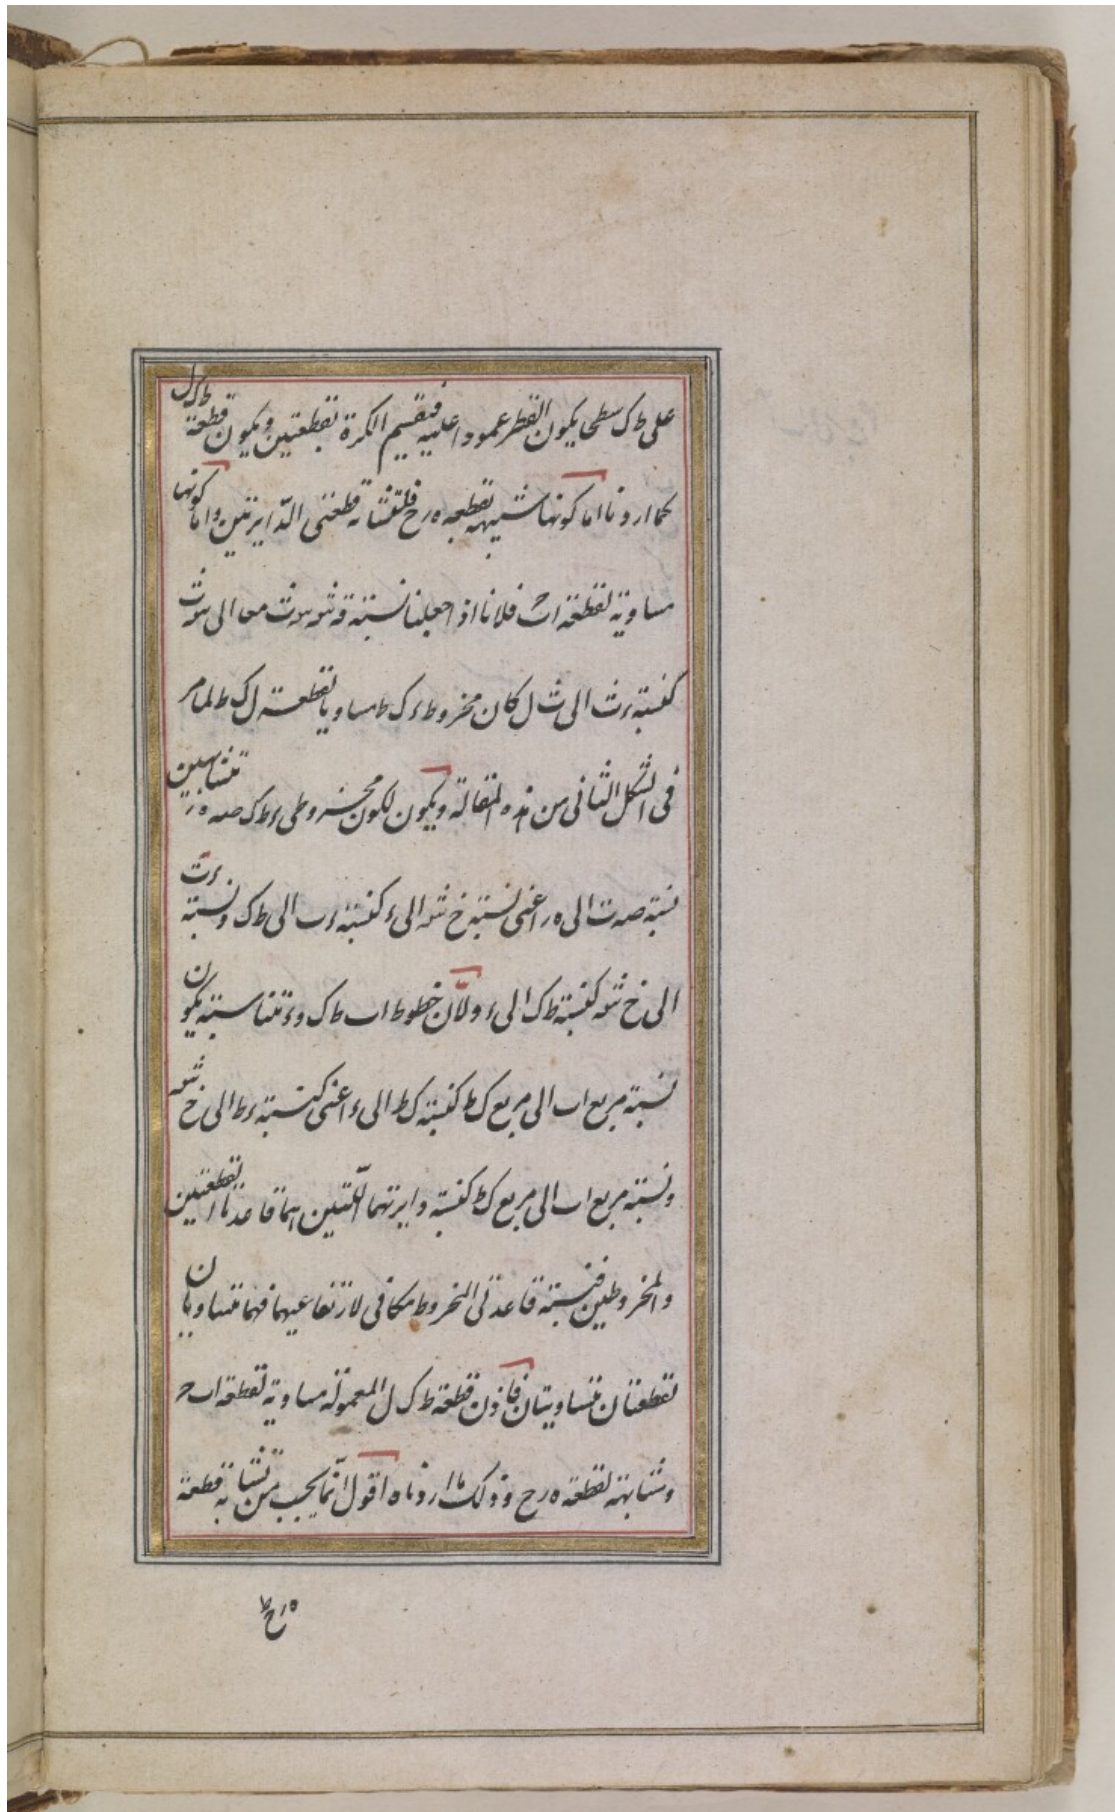 على ط ك سطحا يكون القطر عمودا عليه فيقسم الكرة بقطعتين ويكون قطعة ط ك ل
كما اردنا اما كونها شبيهة بقطعة ه ر خ فلتشابه قطعتى الدايرتين واما كونها
مساوية لقطعة ا ب ح فلانا اذا جعلنا نسبة معا الى
كنسبة ء ث الى ث ل كان مخروط ء ك ط مساويا لقطعة ل ك ط لما مر
فى الشكل الثانى من هذه المقالة ويكون لكون مخروطى ء ط ك صه ه ر متشابهين
نسبة صه ت الى ه ر اعنى نسبة خ شه الى ء كنسبة ء ث الى ط ك ونسبة ء ث
الى خ شه كنسبة ط ك الى ء ولان خطوط ا ب ط ك و ء متناسبة يكون
نسبة مربع ا ب الى مربع ك ط كنسبة ك ط الى ء اعنى كنسبة ء ط الى خ شه
ونسبة مربع ا ب الى مربع ك ط كنسبة دايرتهما اللتين هما قاعدتا القطعتين
والمخروطين فنسبة قاعدتى المخروط مكافى لارتفاعيهما فهما متساويان
لقطعتان متساويتان فاذن قطعة ط ك ل المعمولة مساوية لقطعة ا ب ح
ومشابهة لقطعة ه ر ح وذلك ما اردناه اقول انما يجب من تشابه قطعة
ه ر خ